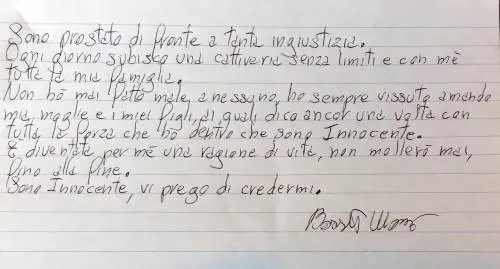 Sono prostato di fronte a tanta ingiustizia.
Ogni giorno subisco una cattiveria senza limiti e con mè
tutta la mia famiglia.
Non hò mai fatto male a nessuno, ho sempre vissuto amando
mia moglie e i miei figli, ai quali dico ancor una volta con
tutta la forza che hò dentro che sono Innocente.
È diventata per mè una ragione di vita, non mollerò mai,
fino alla fine.
Sono Innocente, vi prego di credermi.